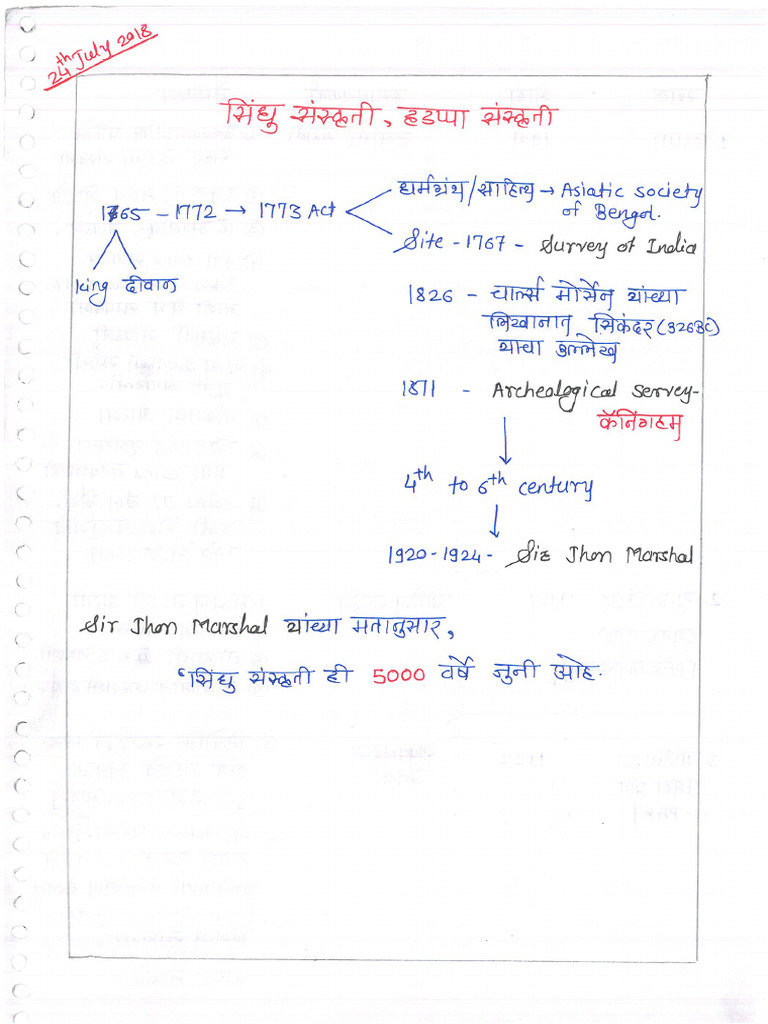 24th July 2018
सिंधु संस्कृती, हडप्पा संस्कृती
1765 - 1772 → 1773 Act
धर्मग्रंथ/साहित्य → Asiatic society
of Bengol.
Site - 1767 - Survey of India
king दीवान
1826 - चार्ल्स मोर्सेन यांच्या
लिखानात सिकंदर (326BC)
याचा उल्लेख
1871 - Archeological servey-
कॅनिंगहम
4th to 6th century
1920-1924- Sir Jhon Marshal
Sir Jhon Marshal यांच्या मतानुसार,
"सिंधु संस्कृती ही 5000 वर्षे जुनी आहे.